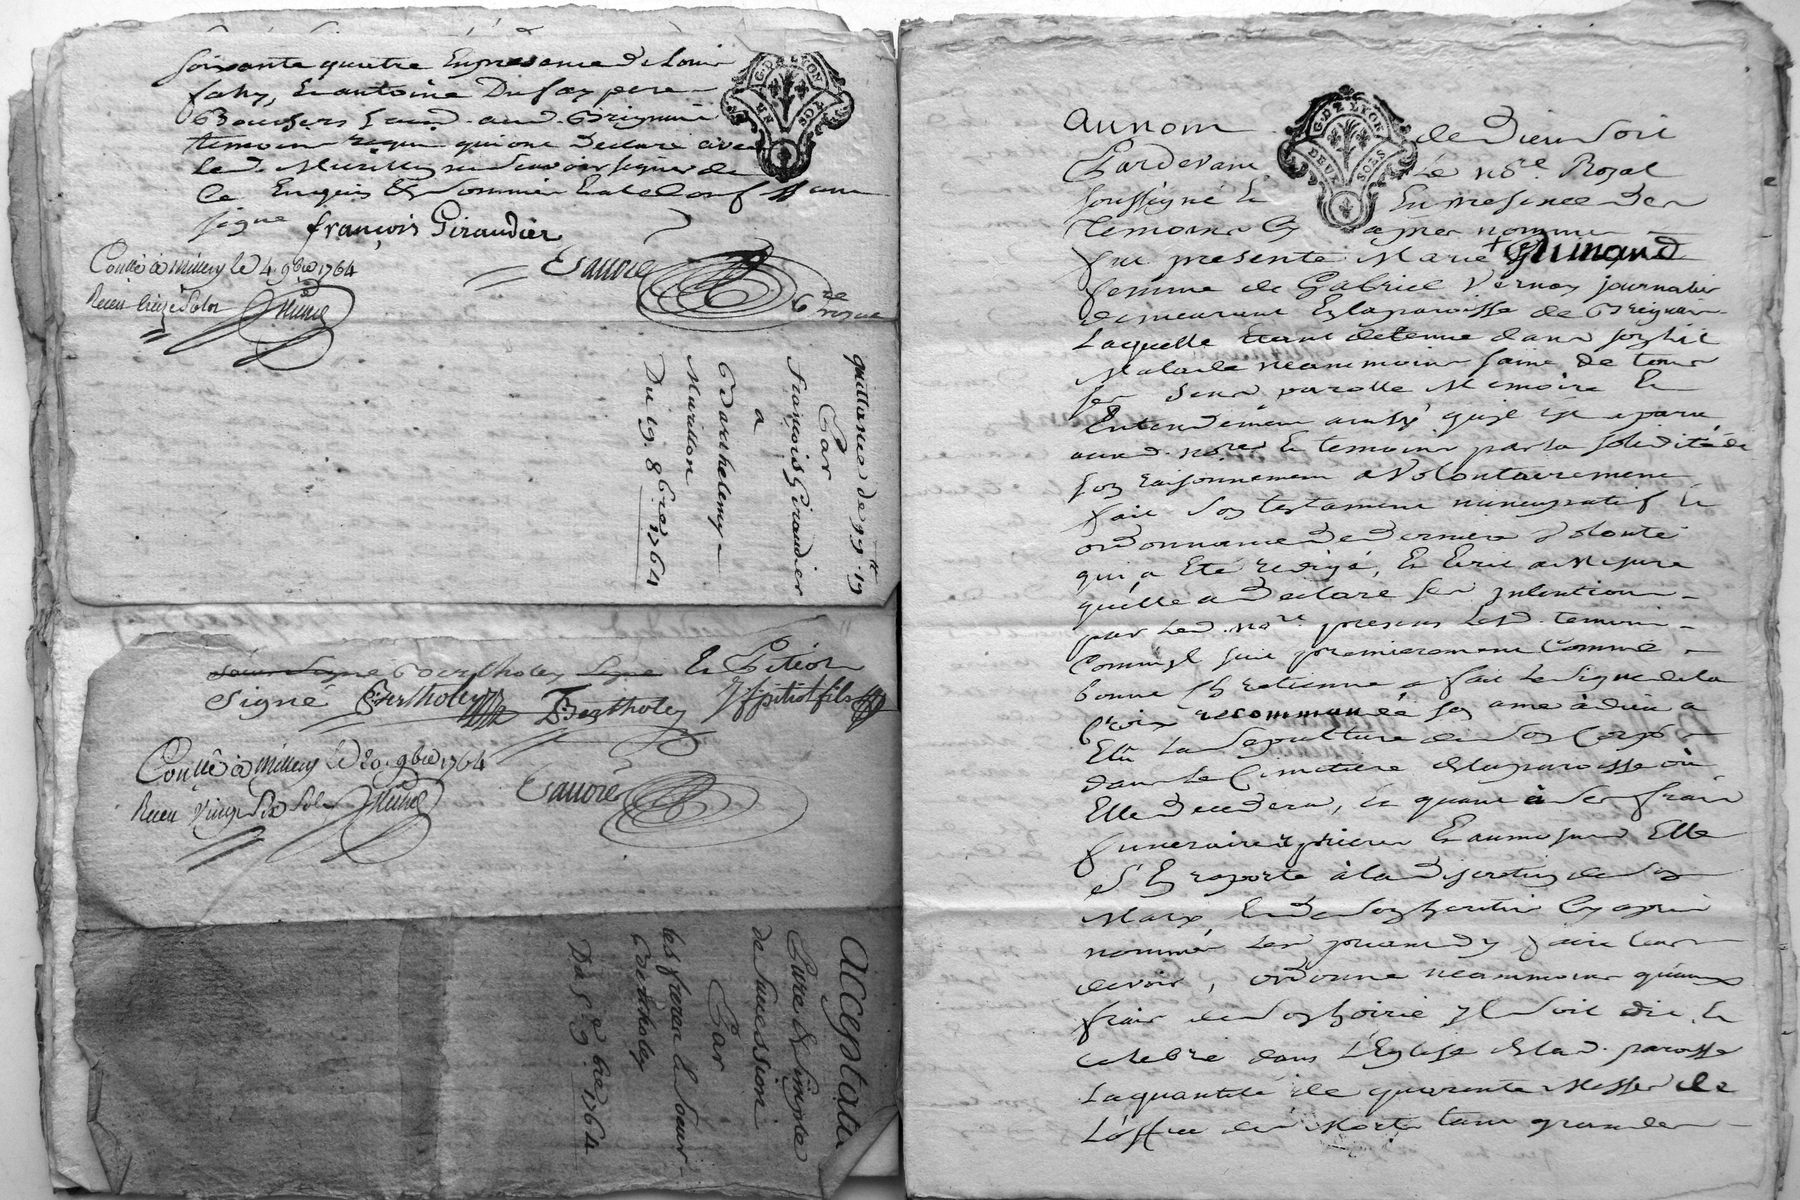 soixante quatre En presence de Louis
faty, Et antoine Dufay pere
G. DE LYON
UN SOL
temoins requis qui ont Declaré avec
led. Murillon ne scavoir signer de
Ce Enquis & sommés
signé françois Giraudier
Conllé à Millery le 4. 9bre 1764
Receu treize Sols
quittance de 99 ‑ 19
Par
François Giraudier
a
Barthelemy
Murillon
Du 19. 8bre 1764
signé Bertholey signe Et Pitiot
Signé Bertholey J Bertholey pitiot fils
Conllé à Millery le 20. 9bre 1764
Receu vingt Six Sols
Acceptation
Pure & Simple
de Succession
Par
les freres & Soeur
Bertholey
Du 5. 9bre 1764
au nom de Dieu soit
G. DE LYON
DEUX SOLS
Pardevant Le nore. Royal
soussigné Et En presence des
temoins Cy apres nommés
fut presente Marie Grimand
femme de Gabriel Vernay journalier
demeurant En la paroisse de Brignais
Laquelle Etant détenue dans son lit
Malade neanmoins saine de tous
ses sens parolle Memoire Et
Entendement ainsy qu'il est aparu
aud. nore. Et temoins par la solidité de
son raisonnement a Volontairement
fait son testament nuncupatif Et
ordonnance de derniere Volonté
qui a Eté redigé, En Ecrit a Mesure
qu'elle a declaré ses intentions
par led. nore. presens Lesd. temoins
Comm'il suit premierement Comme
bonne Chretienne a fait le signe de la
Croix recommandé son ame à dieu a
Elu La Sepulture de son Corps
dans Le Cimetiere de la paroisse où
Elle decedera, Et quant à ses frais
funeraires prieres Et aumosnes Elle
s'En raporte à la discretion de son
Mary, Et de son heritier Cy apres
nommés Les priant d'y faire leur
devoir, ordonne neanmoins qu'aux
frais de son hoirie yl soit dit Et
celebré dans L'Eglise de lad. paroisse
La quantité de quarente Messes de
L'office des Morts tant grandes